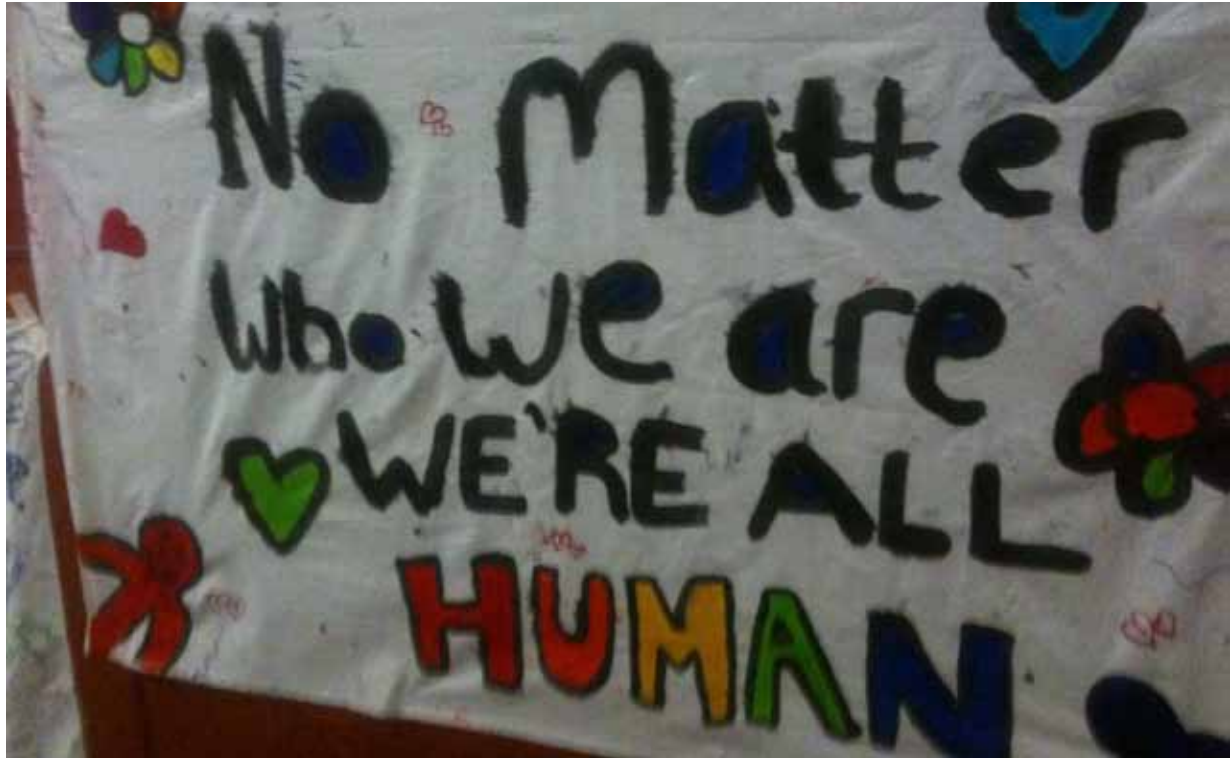 No Matter
Who we are
WE'RE ALL
HUMAN